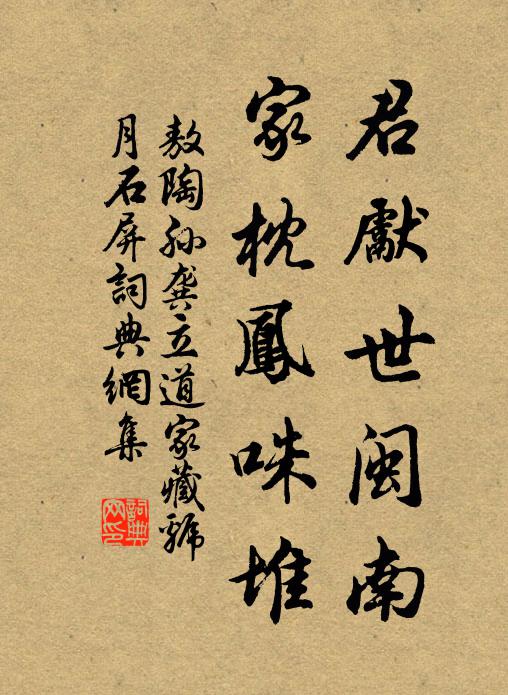 君獻世閩南
家枕鳳咮堆
敖陶孫龔立道家藏號
月石屏詞典網集
詞典网印